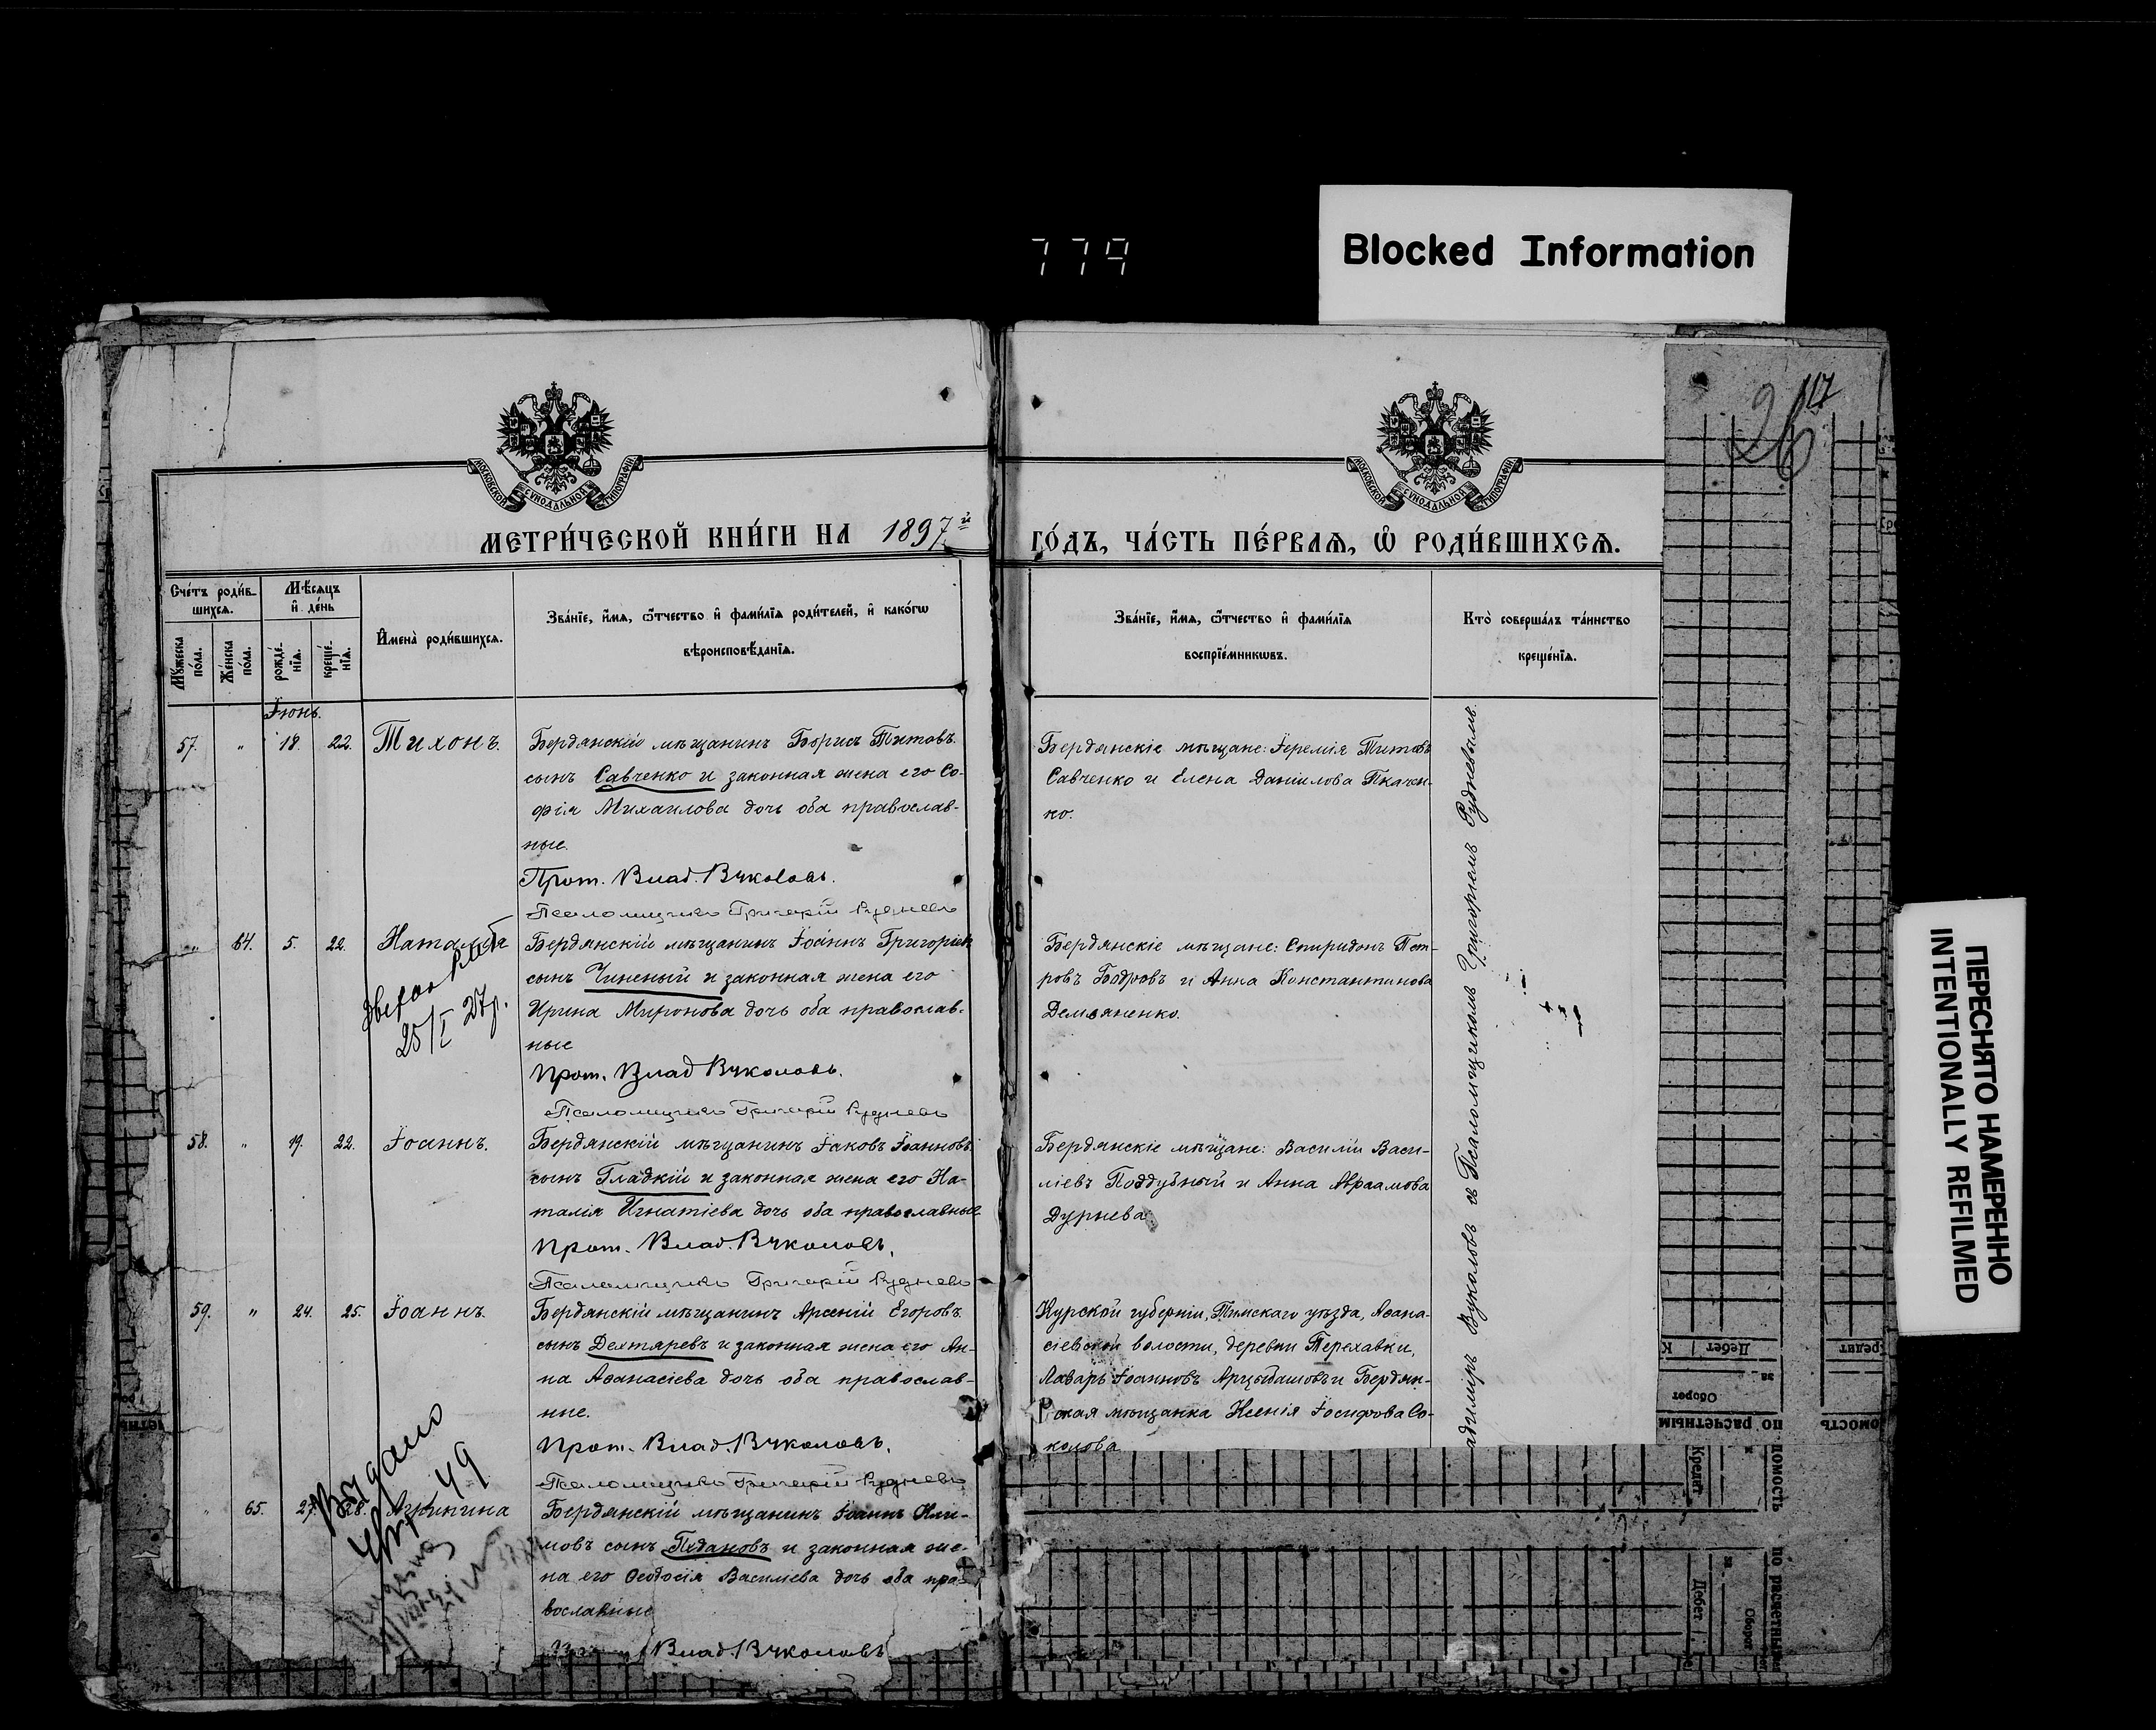 779
Blocked Information
26
117
МОСКОВСКОЙ СѴНОДАЛЬНОЙ ТИПОГРАФІИ
МОСКОВСКОЙ СѴНОДАЛЬНОЙ ТИПОГРАФІИ
МЕТРИ́ЧЕСКОЙ КНИ́ГИ НА 1897й ГО́ДЪ, ЧА́СТЬ ПЕ́РВАѦ, Ѡ҆ РОДИ́ВШИХСѦ.
Сче́тъ роди́в-
шихсѧ.
Мѣ́сѧцъ
и҆ де́нь
Мꙋ́жеска
по́ла.
Же́нска
по́ла.
рожде́-
нїѧ.
креще́-
нїѧ.
И҆мена̀ роди́вшихсѧ.
Зва́нїе, и҆́мѧ, ѻ҆́тчество и҆ фами́лїѧ роди́телей, и҆ како́гѡ
вѣроисповѣ́данїѧ.
Зва́нїе, и҆́мѧ, ѻ҆́тчество и҆ фами́лїѧ
воспрїе́мникѡвъ.
Кто̀ соверша́лъ та́инство
креще́нїѧ.
Іюнь.
57. " 18. 22. Тихонъ.
Бердянскій мѣщанинъ Борисъ Титовъ
сынъ Савченко и законная жена его Со-
фія Михаилова дочь оба православ-
ные.
Прот. Влад. Вуколовъ.
Псаломщикъ Григорій Рудневъ
Бердянскіе мѣщане: Іеремія Титовъ
Савченко и Елена Даніилова Ткачен-
ко.
" 64. 5. 22. Наталія
25/I 27г.
Бердянскій мѣщанинъ Іоаннъ Григоріев
сынъ Чиненый и законная жена его
Ирина Миронова дочь оба православ-
ные
Прот. Влад Вуколовъ.
Псаломщикъ Григорій Рудневъ
Бердянскіе мѣщане: Спиридонъ Пет-
ровъ Бодровъ и Анна Константинова
Демьяненко.
58. " 19. 22. Іоаннъ.
Бердянскій мѣщанинъ Іаковъ Іоанновъ
сынъ Гладкій и законная жена его На-
талія Игнатіева дочь оба православные
Прот. Влад. Вуколовъ,
Псаломщикъ Григорій Рудневъ
Бердянскіе мѣщане: Василій Васи-
ліевъ Поддубный и Анна Авраамова
Дурнева.
59. " 24. 25. Іоаннъ.
Бердянскій мѣщанинъ Арсеній Егоровъ
сынъ Дехтяревъ и законная жена его Ан-
на Аѳанасіева дочь оба православ-
ные.
Прот. Влад. Вуколовъ,
Псаломщикъ Григорій Рудневъ
Курской губерніи, Тимскаго уѣзда, Аѳана-
сіевской волости, деревни Перехавки,
Лазарь Іоанновъ Арцыбашовъ и Бердян-
ская мѣщанка Ксенія Іосифова Со-
колова
" 65. 27. 28. Агрипина
Выдано
49
Бердянскій мѣщанинъ Іоаннъ Кли-
мовъ сынъ Педановъ и законная же-
на его Ѳеодосія Василіева дочь оба пра-
вославные
Влад. Вуколовъ
адиміръ Вуколовъ съ Псаломщикомъ Григоріемъ Рудневымъ.
ПЕРЕСНЯТО НАМЕРЕННО
INTENTIONALLY REFILMED
Дебет
К
Кредит
Оборот
по расчетным
Кредит
Дебет
Оборот
по расчетным